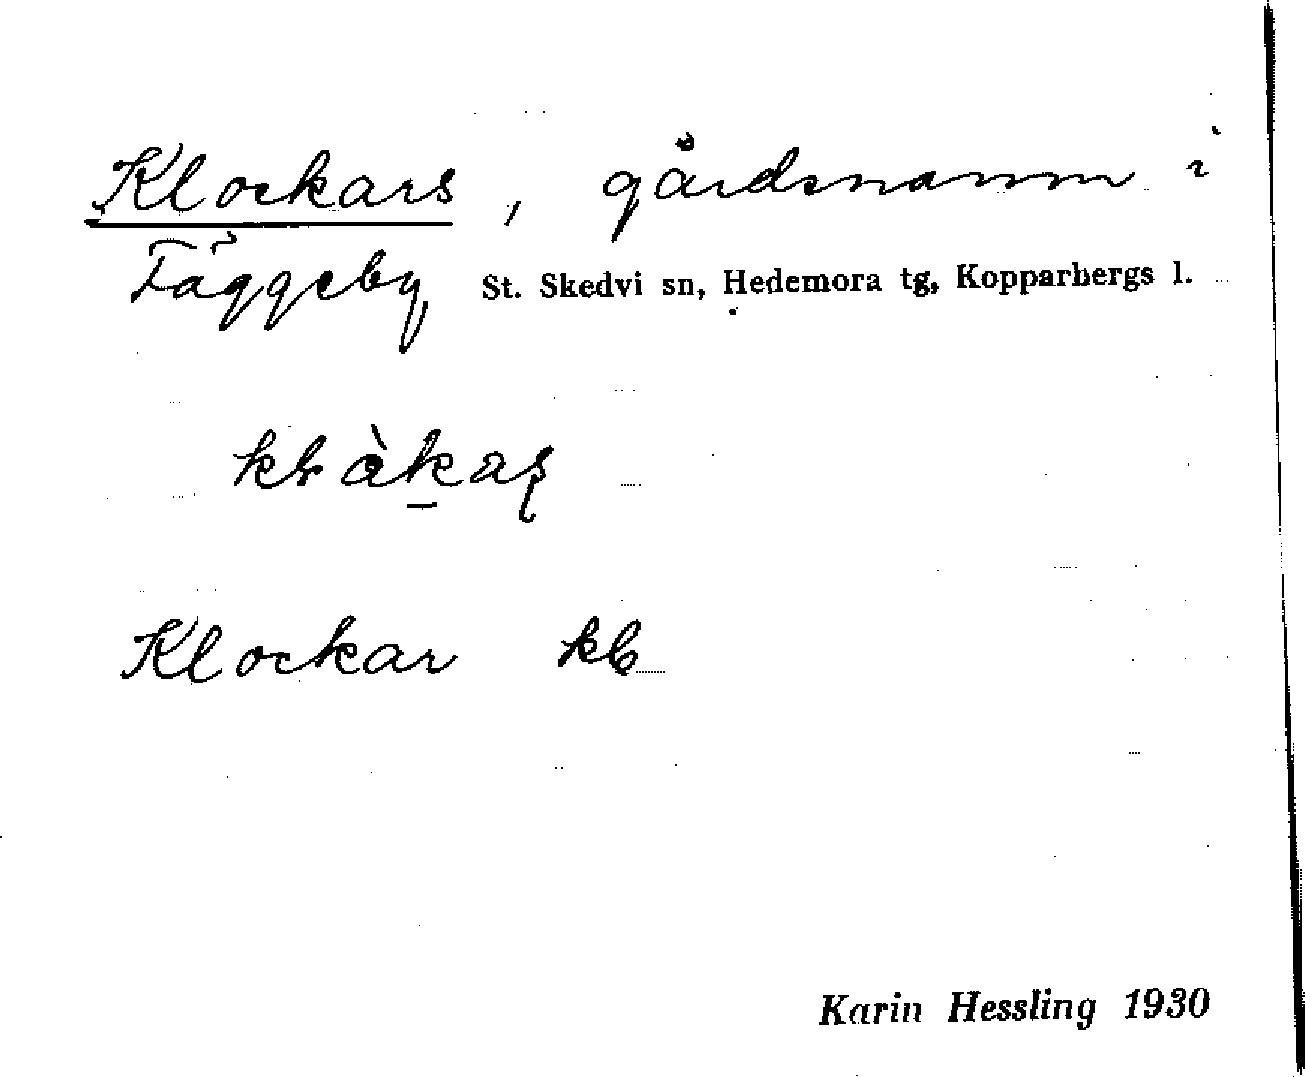 Klockars, gårdsnamn i
Täggeby St. Skedvi sn, Hedemora tg, Kopparbergs l.
Klockar kb
Karin Hessling 1930